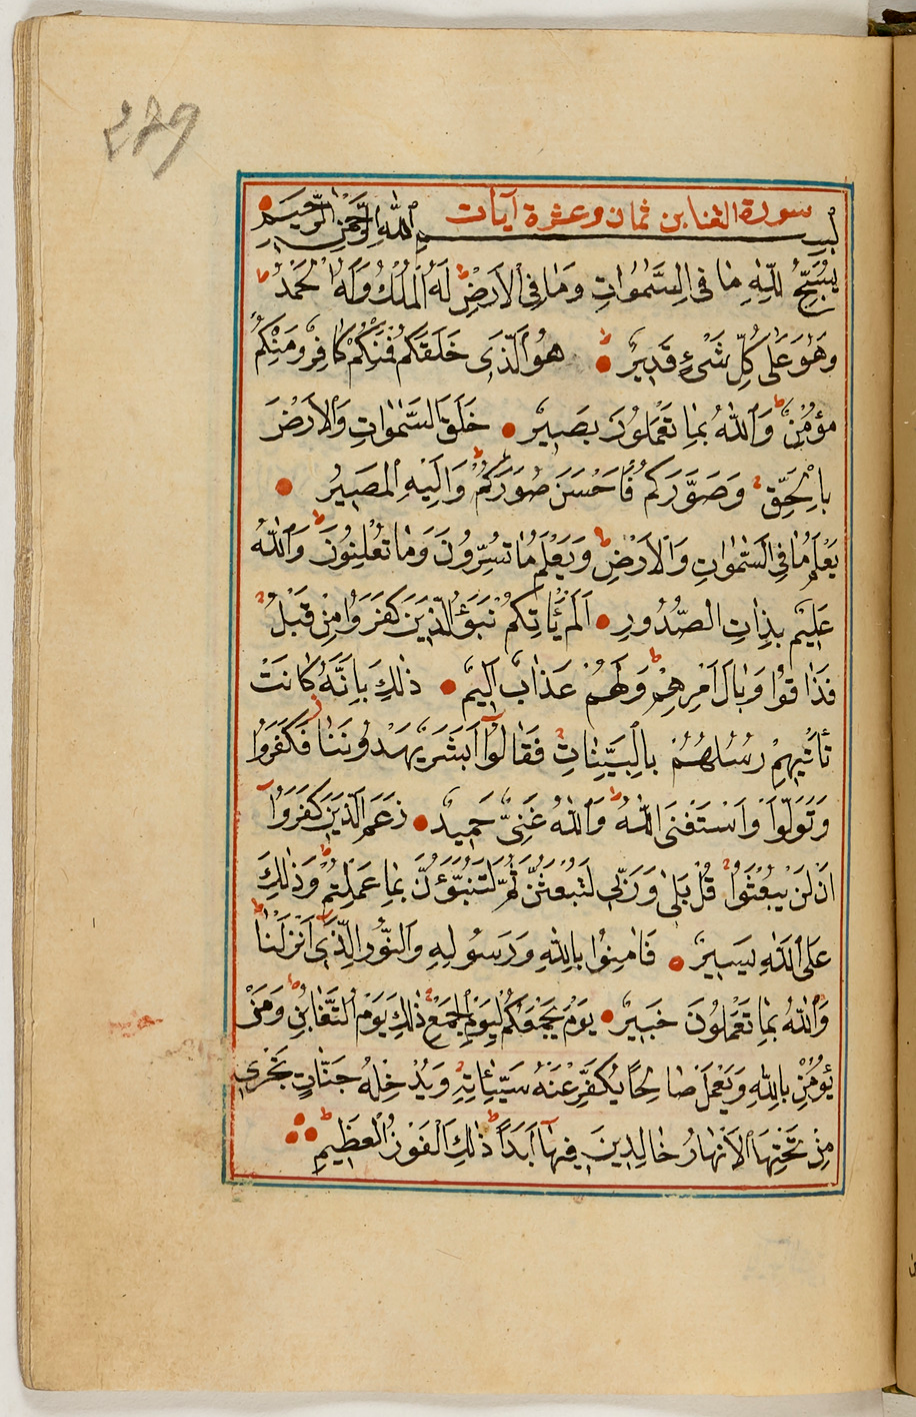 279
سورة التغابن ثمان وعشرة آيات
بِسْمِ اللّٰهِ الرَّحْمٰنِ الرَّحِيمِ
يُسَبِّحُ لِلّٰهِ مَا فِى السَّمٰوَاتِ وَمَا فِى الْاَرْضِ لَهُ الْمُلْكُ وَلَهُ الْحَمْدُ
وَهُوَ عَلٰى كُلِّ شَىْءٍ قَدِيرٌ هُوَ الَّذِى خَلَقَكُمْ فَمِنْكُمْ كَافِرٌ وَمِنْكُمْ
مُؤْمِنٌ وَاللّٰهُ بِمَا تَعْمَلُونَ بَصِيرٌ خَلَقَ السَّمٰوَاتِ وَالْاَرْضَ
بِالْحَقِّ وَصَوَّرَكُمْ فَاَحْسَنَ صُوَرَكُمْ وَاِلَيْهِ الْمَصِيرُ
يَعْلَمُ مَا فِى السَّمٰوَاتِ وَالْاَرْضِ وَيَعْلَمُ مَا تُسِرُّونَ وَمَا تُعْلِنُونَ وَاللّٰهُ
عَلِيمٌ بِذَاتِ الصُّدُورِ اَلَمْ يَأْتِكُمْ نَبَؤُ الَّذِينَ كَفَرُوا مِنْ قَبْلُ
فَذَاقُوا وَبَالَ اَمْرِهِمْ وَلَهُمْ عَذَابٌ اَلِيمٌ ذٰلِكَ بِاَنَّهُ كَانَتْ
تَأْتِيهِمْ رُسُلُهُمْ بِالْبَيِّنَاتِ فَقَالُوا اَبَشَرٌ يَهْدُونَنَا فَكَفَرُوا
وَتَوَلَّوْا وَاسْتَغْنَى اللّٰهُ وَاللّٰهُ غَنِىٌّ حَمِيدٌ زَعَمَ الَّذِينَ كَفَرُوا
اَنْ لَنْ يُبْعَثُوا قُلْ بَلٰى وَرَبِّى لَتُبْعَثُنَّ ثُمَّ لَتُنَبَّؤُنَّ بِمَا عَمِلْتُمْ وَذٰلِكَ
عَلَى اللّٰهِ يَسِيرٌ فَاٰمِنُوا بِاللّٰهِ وَرَسُولِهِ وَالنُّورِ الَّذِى اَنْزَلْنَا
وَاللّٰهُ بِمَا تَعْمَلُونَ خَبِيرٌ يَوْمَ يَجْمَعُكُمْ لِيَوْمِ الْجَمْعِ ذٰلِكَ يَوْمُ التَّغَابُنِ وَمَنْ
يُؤْمِنْ بِاللّٰهِ وَيَعْمَلْ صَالِحًا يُكَفِّرْ عَنْهُ سَيِّئَاتِهِ وَيُدْخِلْهُ جَنَّاتٍ تَجْرِى
مِنْ تَحْتِهَا الْاَنْهَارُ خَالِدِينَ فِيهَا اَبَدًا ذٰلِكَ الْفَوْزُ الْعَظِيمُ